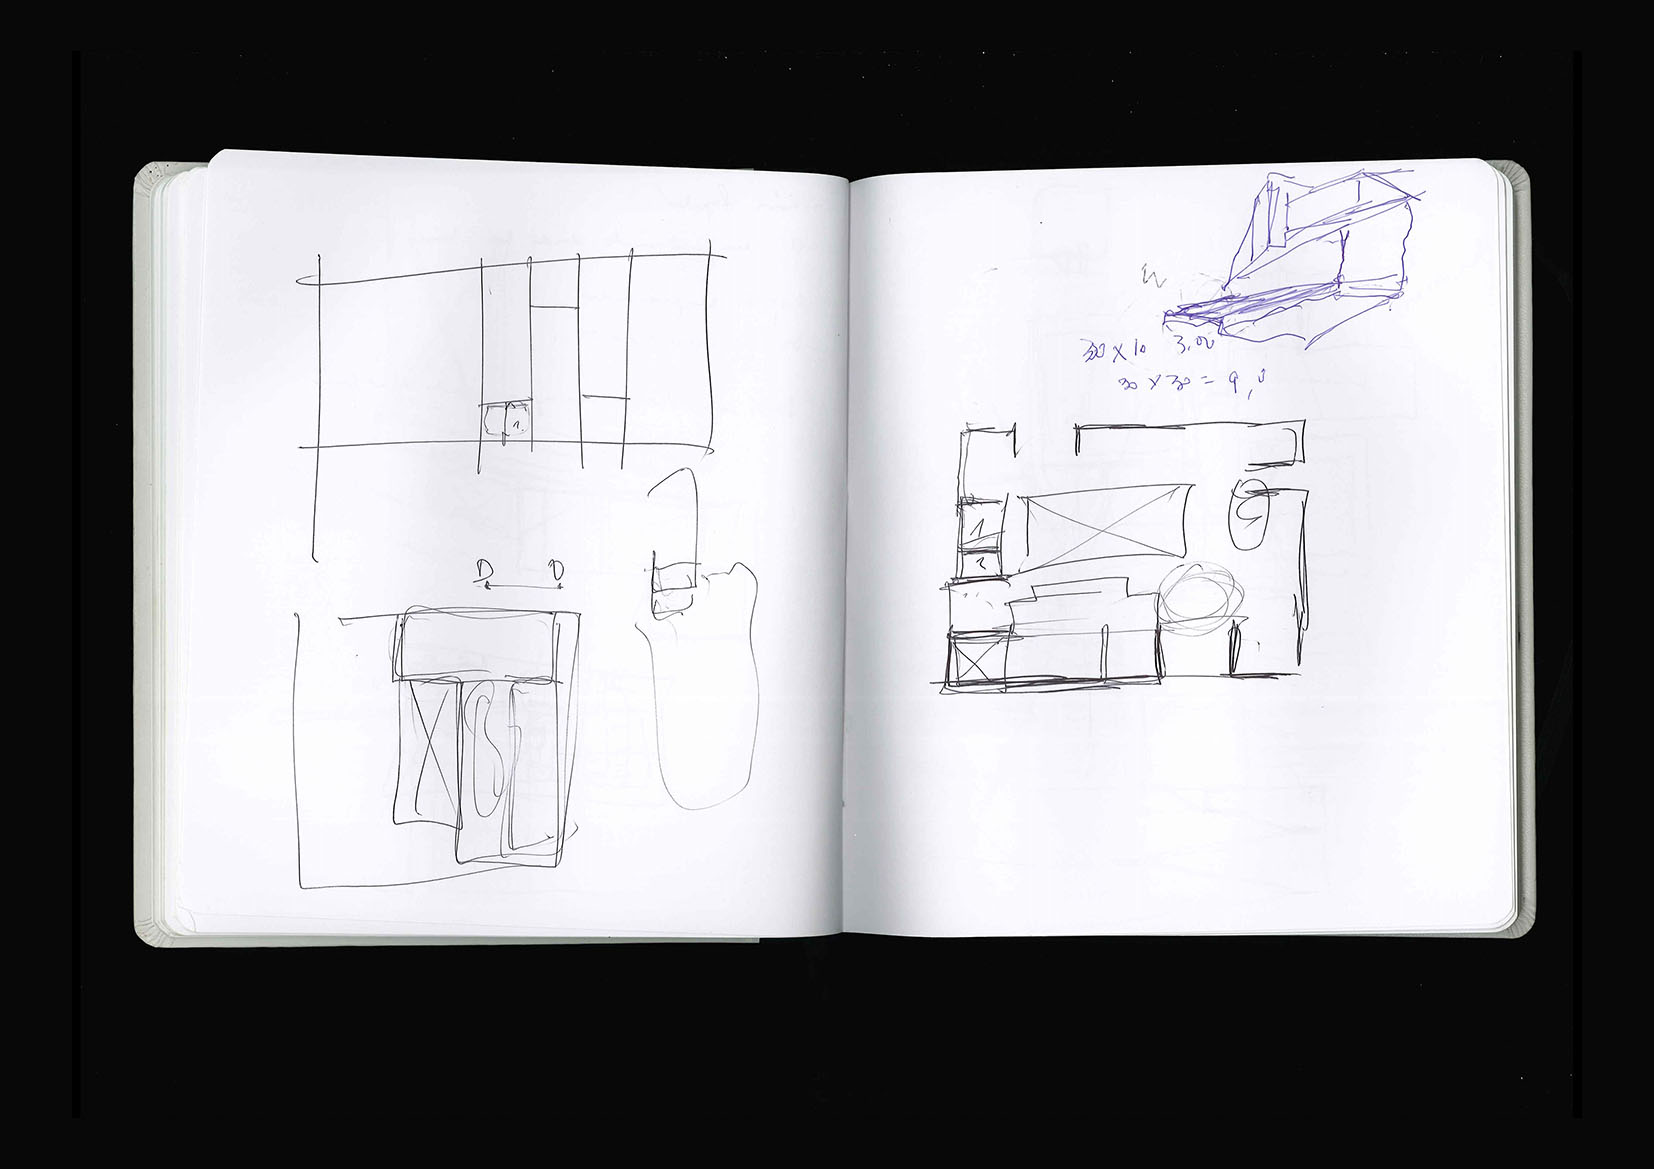 1.
D D
30 X 10 3.00
30 X 30 = 9,0
1
2